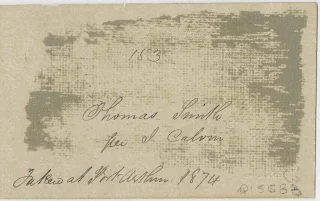 153
Thomas Smith
per J. Calvin
Taken at Port Arthur 1874